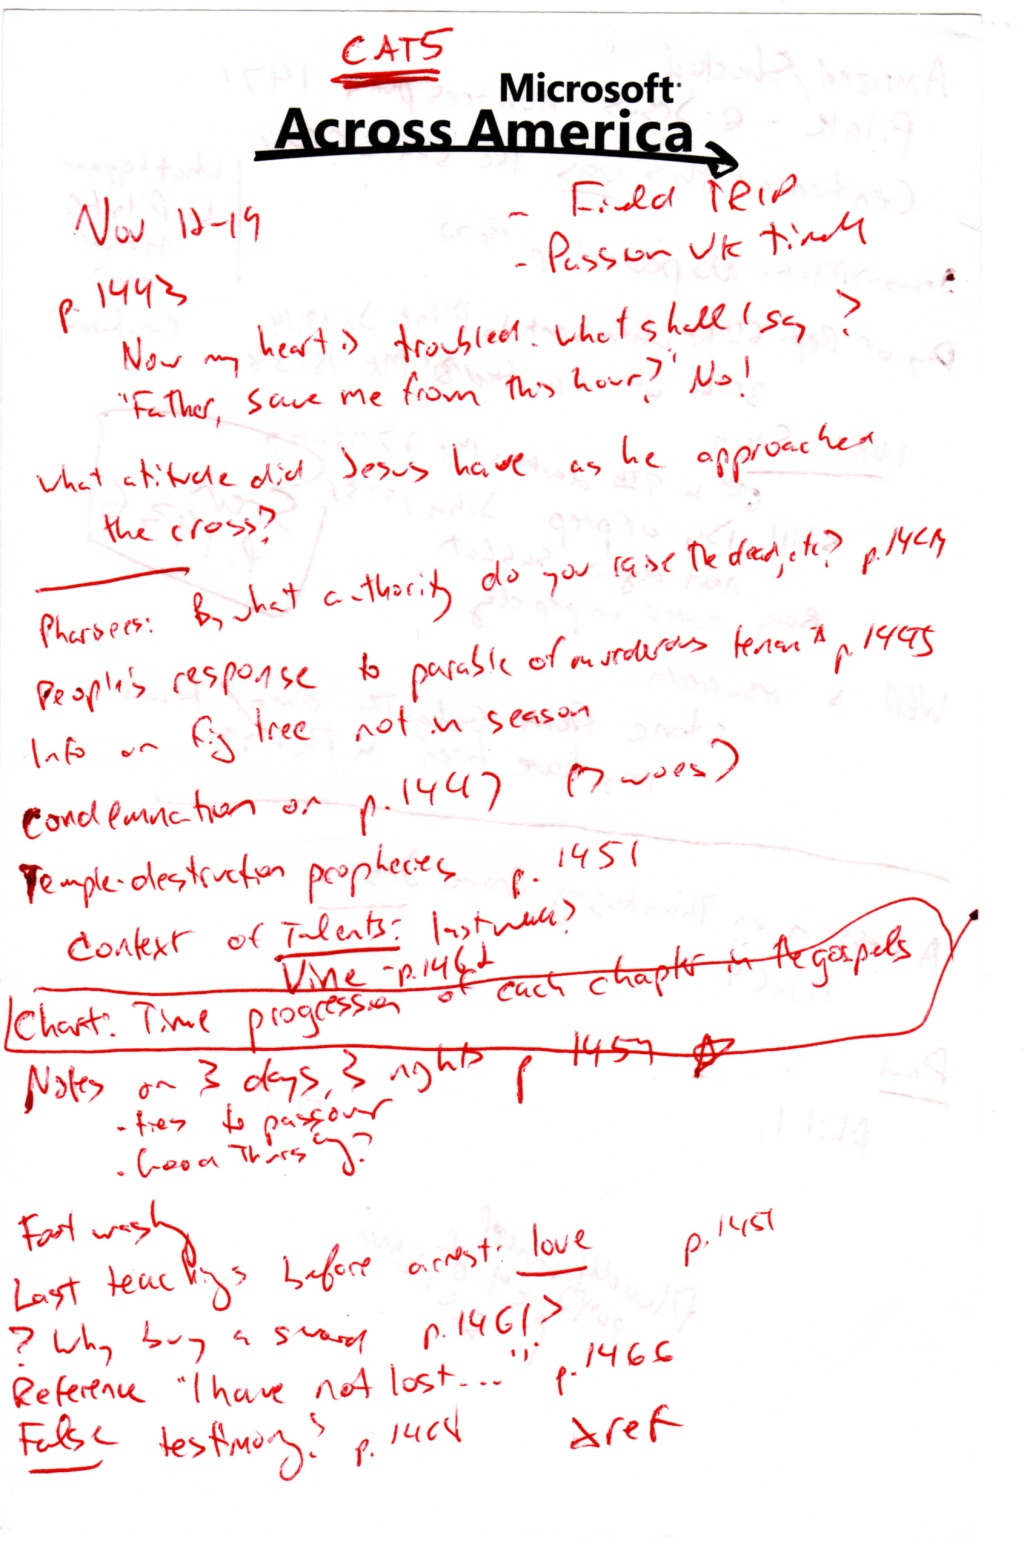 CAT5
Microsoft
Across America
Nov 12-19
- Field TRIP
- Passion Wk
p. 1443
Now my heart is troubled. What shall I say?
"Father, save me from this hour?" No!
What attitude did Jesus have as he approached
the cross?
Pharisees: By what authority do you raise the dead, etc? p.
People's response to parable of murderous tenants p. 1445
Info on fig tree not in season
Condemnation on p. 1447 (7 woes)
Temple-destruction prophecies p. 1451
Context of Talents: last week?
Vine - p. 1462
Chart: Time progression of each chapter in the gospels
Notes on 3 days, 3 nights p 1457
- ties to passover
- Good Thursday?
Foot washing
Last teachings before arrest: love p. 1451
? Why buy a sword p. 1461?
Reference "I have not lost..." p. 1466
False testimony? p. ref